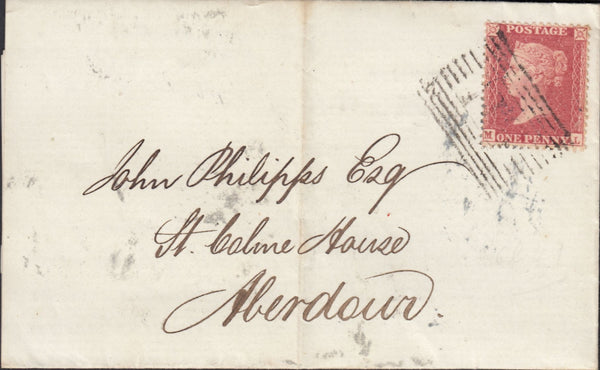 POSTAGE
M ONE PENNY L
John Philipps Esq
St. Colme House
Aberdour.